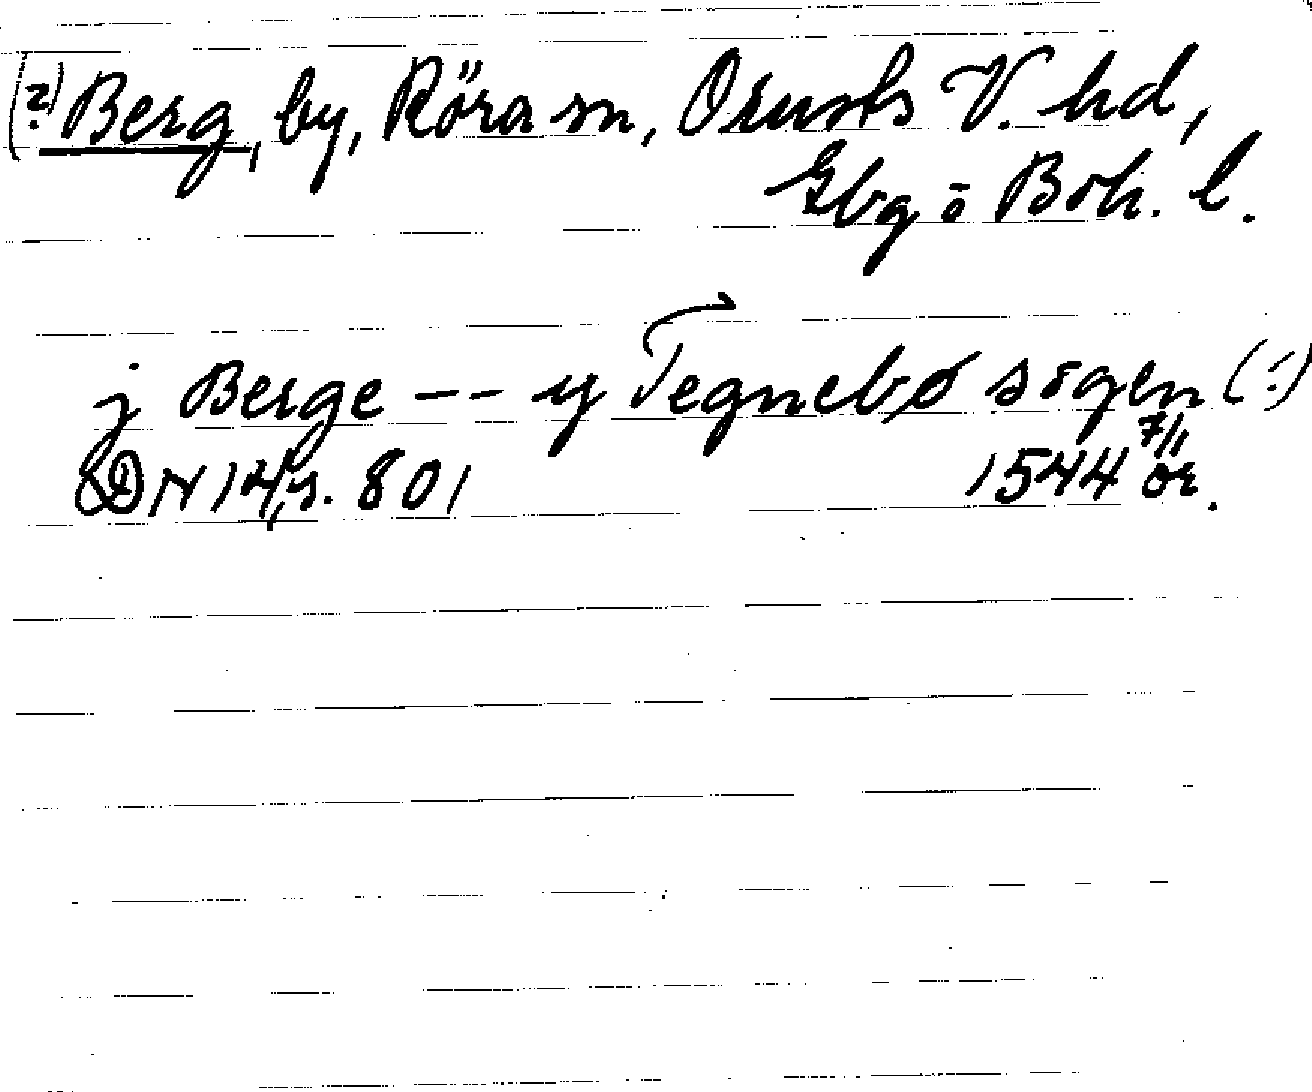 (?) Berg, by, Röra sn, Orusts V. hd,
Gbg o Boh. l.
j Berge -- y Tegnebø sogen (?)
DN 14, s. 801 1544 7/11 or.